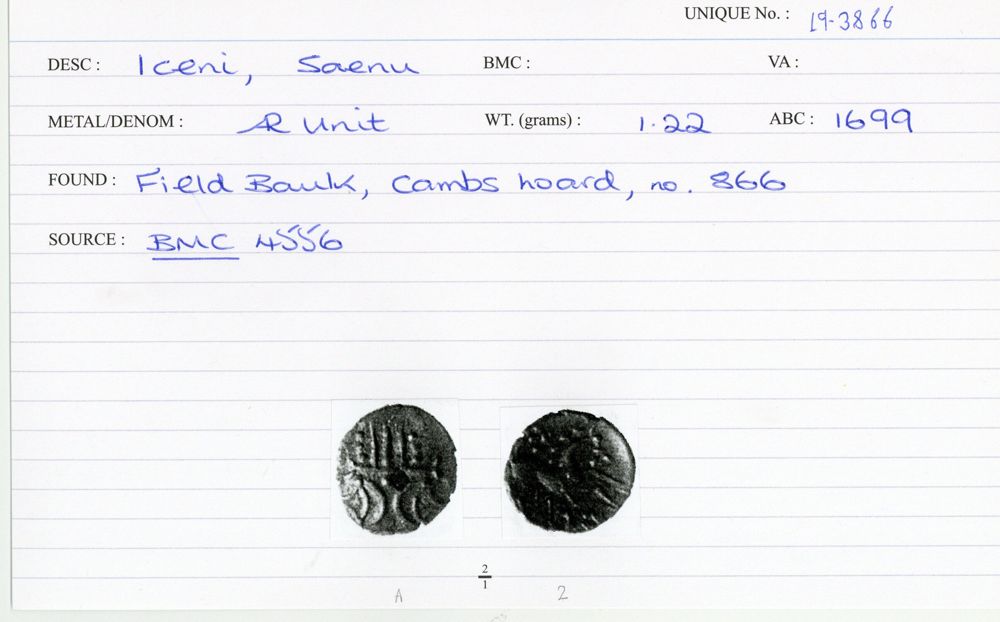 UNIQUE No. : 19-3866
DESC : Iceni, Saenu BMC : VA :
METAL/DENOM : AR Unit WT. (grams) : 1.22 ABC : 1699
FOUND : Field Baulk, Cambs hoard, no. 866
SOURCE : BMC 4556
2/1
A 2